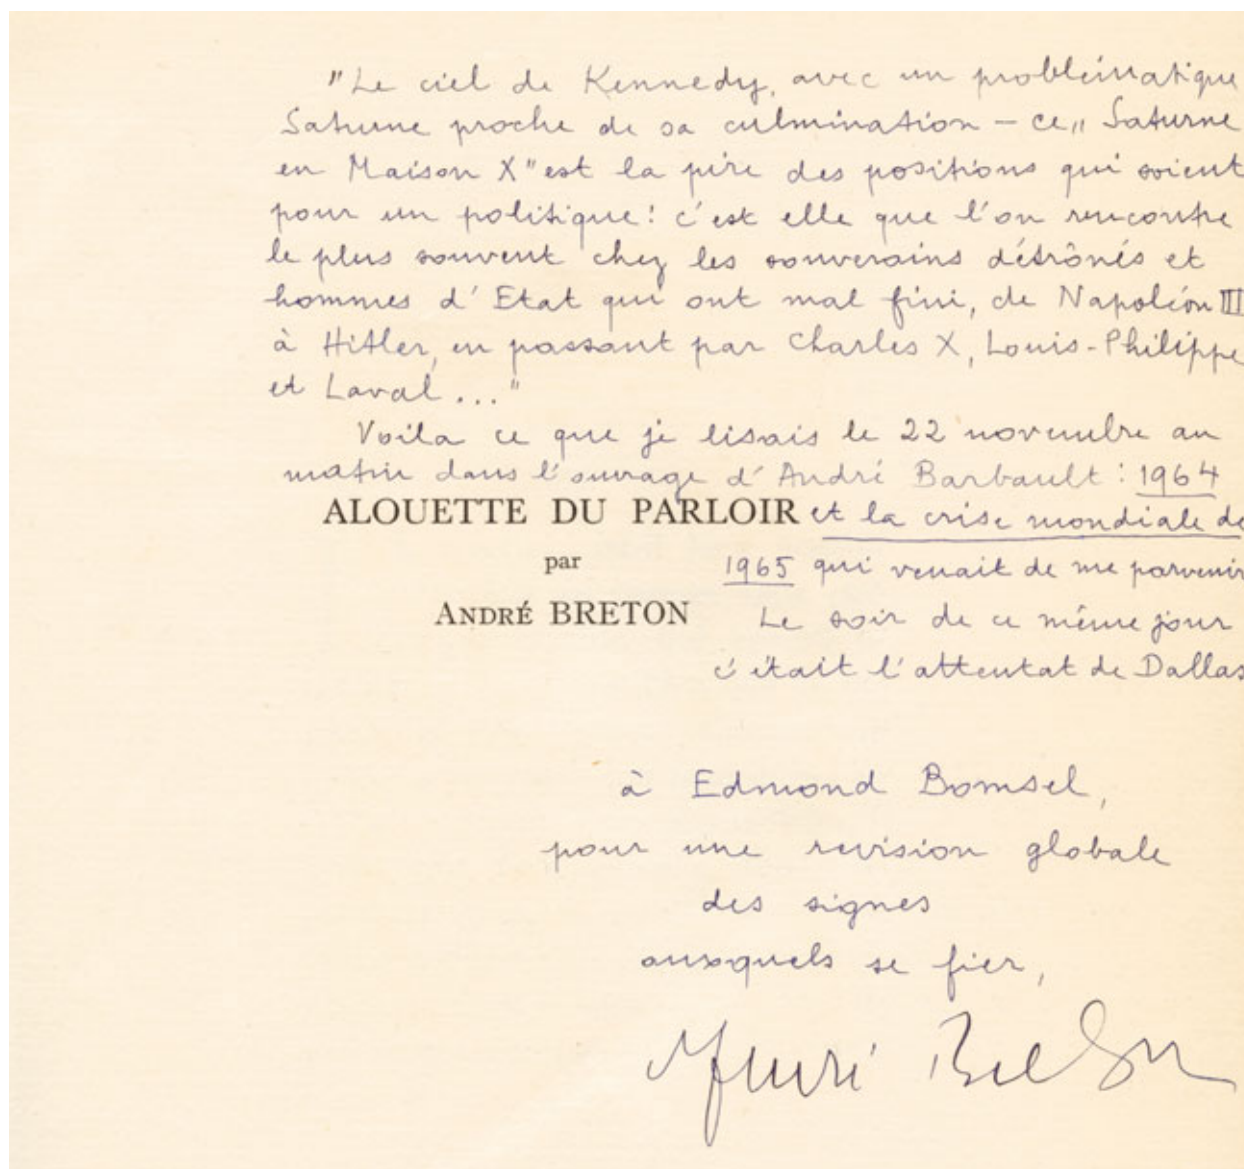 "Le ciel de Kennedy, avec un problématique
Saturne proche de sa culmination – ce „ Saturne
en Maison X" est la pire des positions qui soient
pour un politique : c'est elle que l'on rencontre
le plus souvent chez les souverains détrônés et
hommes d'Etat qui ont mal fini, de Napoléon III
à Hitler, en passant par Charles X, Louis-Philippe
et Laval ..."
Voila ce que je lisais le 22 novembre au
matin dans l'ouvrage d'André Barbault : 1964
ALOUETTE DU PARLOIR et la crise mondiale de
par 1965 qui venait de me parvenir
ANDRÉ BRETON Le soir de ce même jour
c'était l'attentat de Dallas
à Edmond Bomsel,
pour une revision globale
des signes
auxquels se fier,
André Breton